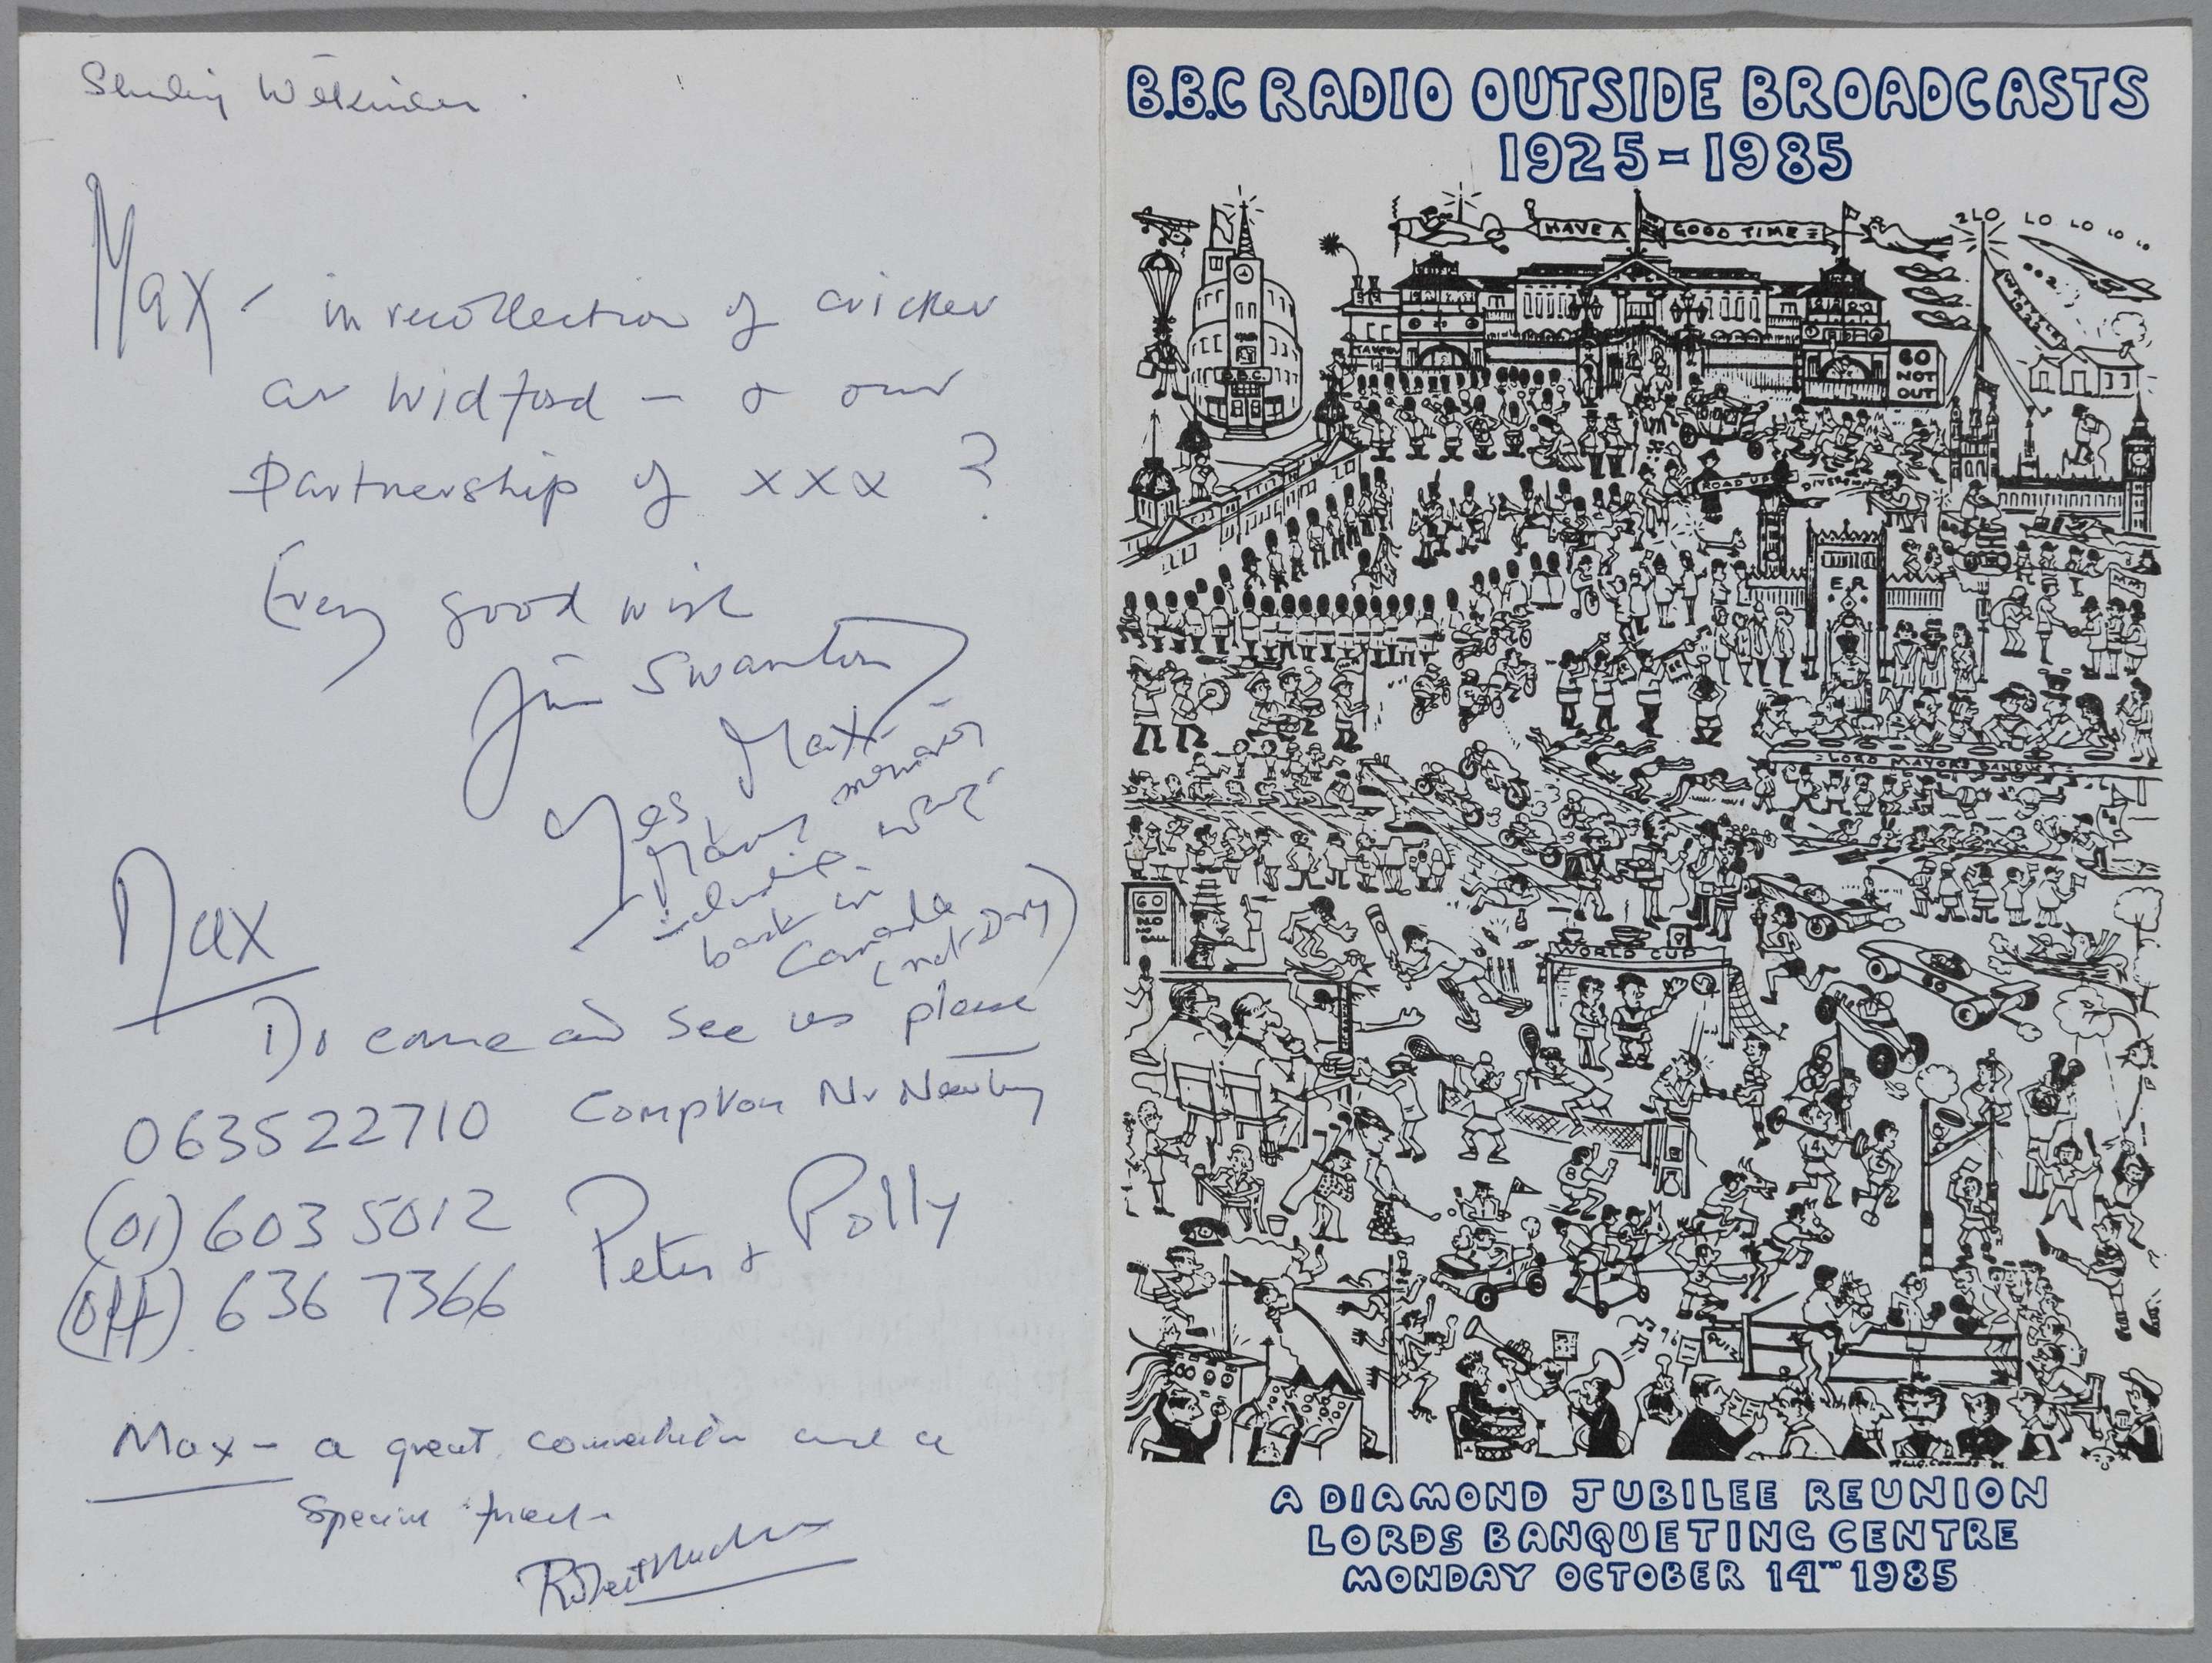 Max - in recollection of cricket
at Widford - & our
Partnership of xxx ?
Every good wish
Jim Swanton
Max
Yes
Many memories
including
back in
Canada
(not Dry)
Max
Do come and see us please
063522710 Compton Nr Newbury
(01) 603 5012
(off) 636 7366
Peter & Polly
Max - a great and a
special friend
Robert Hudson
B.B.C RADIO OUTSIDE BROADCASTS
1925-1985
HAVE A GOOD TIME
2LO LO LO LO LO
WRITTLE
1922
TAVERN
B.B.C.
60
NOT
OUT
ROAD UP
DIVERSION
E.R.
MM
LORD MAYORS BANQUET
60
NO
BALL
WORLD CUP
QUIZ
A DIAMOND JUBILEE REUNION
LORDS BANQUETING CENTRE
MONDAY OCTOBER 14TH 1985